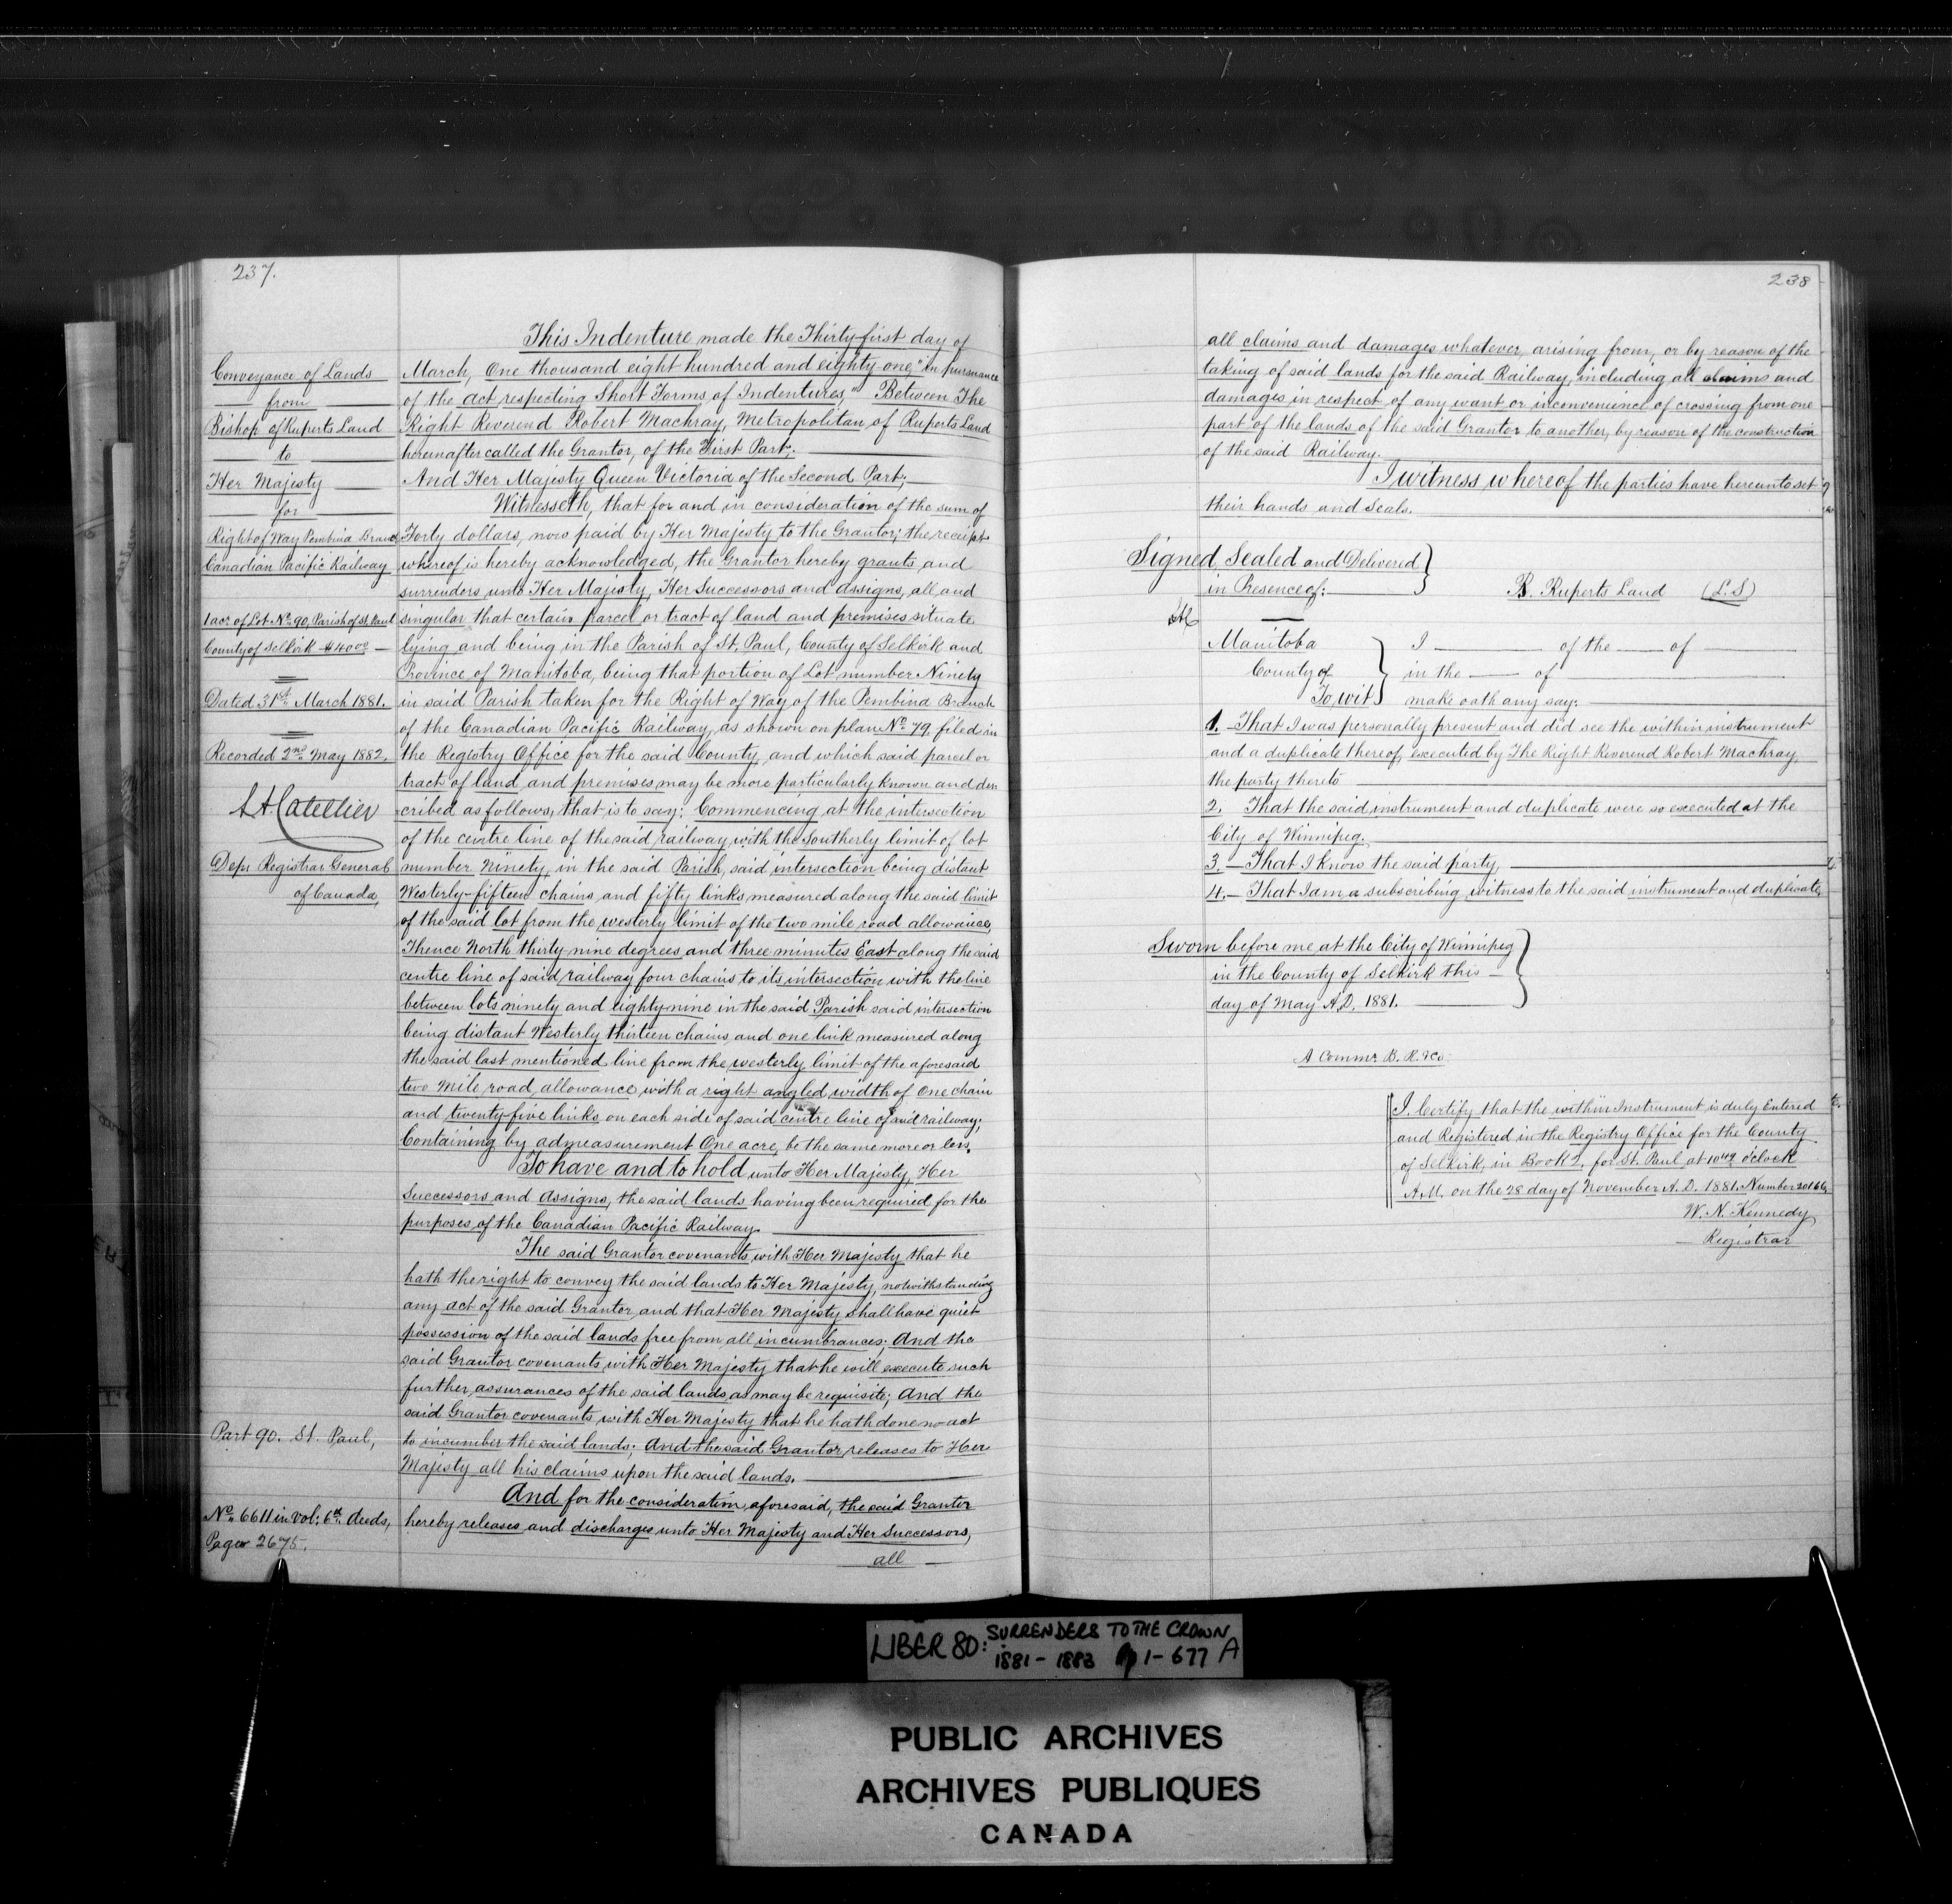 237.
Conveyance of Lands
from
Bishop of Ruperts Land
to
Her Majesty
for
Right of Way Pembina Branch
Canadian Pacific Railway
1 acr of Lot No. 90, Parish of St. Paul
County of Selkirk $40.00
Dated 31st March 1881.
Recorded 2nd May 1882.
L. A. Catellier
Depy Registrar General
of Canada,
Part 90. St. Paul,
No. 6611 in Vol: 6th deeds,
Page 2675.
This Indenture made the Thirty first day of
March, One thousand eight hundred and eighty one, "in pursuance
of the act respecting Short Forms of Indentures," Between The
Right Reverend Robert Machray, Metropolitan of Ruperts Land
hereinafter called the Grantor, of the First Part;
And Her Majesty Queen Victoria of the Second Part;
Witnesseth, that for and in consideration of the sum of
Forty dollars, now paid by Her Majesty to the Grantor; the receipt
whereof is hereby acknowledged, the Grantor hereby grants and
surrenders unto Her Majesty, Her Successors and assigns, all and
singular that certain parcel or tract of land and premises situate
lying and being in the Parish of St. Paul, County of Selkirk and
Province of Manitoba, being that portion of Lot number Ninety
in said Parish taken for the Right of Way of the Pembina Branch
of the Canadian Pacific Railway, as shown on plan No. 79, filed in
the Registry Office for the said County, and which said parcel or
tract of land and premises may be more particularly known and des
cribed as follows, that is to say: Commencing at the intersection
of the centre line of the said railway with the Southerly limit of lot
number Ninety, in the said Parish, said intersection being distant
Westerly fifteen chains and fifty links measured along the said limit
of the said lot from the westerly limit of the two mile road allowance,
Thence North thirty nine degrees and three minutes East along the said
centre line of said railway four chains to its intersection with the line
between lots ninety and eighty nine in the said Parish said intersection
being distant Westerly thirteen chains and one link measured along
the said last mentioned line from the westerly limit of the aforesaid
two mile road allowance with a right angled width of One chain
and twenty-five links on each side of said centre line of said railway;
Containing by admeasurement One acre, be the same more or less.
To have and to hold unto Her Majesty, Her
Successors and assigns, the said lands having been required for the
purposes of the Canadian Pacific Railway.
The said Grantor covenants with Her Majesty that he
hath the right to convey the said lands to Her Majesty, notwithstanding
any act of the said Grantor, and that Her Majesty shall have quiet
possession of the said lands free from all incumbrances; And the
said Grantor covenants with Her Majesty that he will execute such
further assurances of the said lands, as may be requisite; And the
said Grantor covenants with Her Majesty that he hath done no act
to incumber the said lands; And the said Grantor releases to Her
Majesty all his claims upon the said lands.
And for the consideration aforesaid, the said Grantor
hereby releases and discharges unto Her Majesty and Her Successors,
all
238
all claims and damages whatever, arising from, or by reason of the
taking of said lands for the said Railway, including all claims and
damages in respect of any want or inconvenience of crossing from one
part of the lands of the said Grantor to another, by reason of the construction
of the said Railway.
I witness whereof the parties have hereunto set
their hands and Seals.
Signed, Sealed and Delivered
in Presence of:
R. Ruperts Land (L.S)
Manitoba
County of
To wit
I of the of
in the of
make oath any say:
1. That I was personally present and did see the within instrument
and a duplicate thereof, executed by The Right Reverend Robert Machray,
the party thereto
2. That the said instrument and duplicate were so executed at the
City of Winnipeg.
3. That I know the said party,
4. That I am a subscribing witness to the said instrument and duplicate,
Sworn before me at the City of Winnipeg
in the County of Selkirk this
day of May A.D. 1881.
A Commr. B. R. &Co.
I Certify that the within Instrument is duly Entered
and Registered in the Registry Office for the County
of Selkirk, in Book 2. for St. Paul at 10 o'clock
A.M. on the 28 day of November A.D. 1881. Number
W. N. Kennedy
Registrar
LIBER 80: SURRENDERS TO THE CROWN
1881 - 1883 pp 1 - 677 A
PUBLIC ARCHIVES
ARCHIVES PUBLIQUES
CANADA